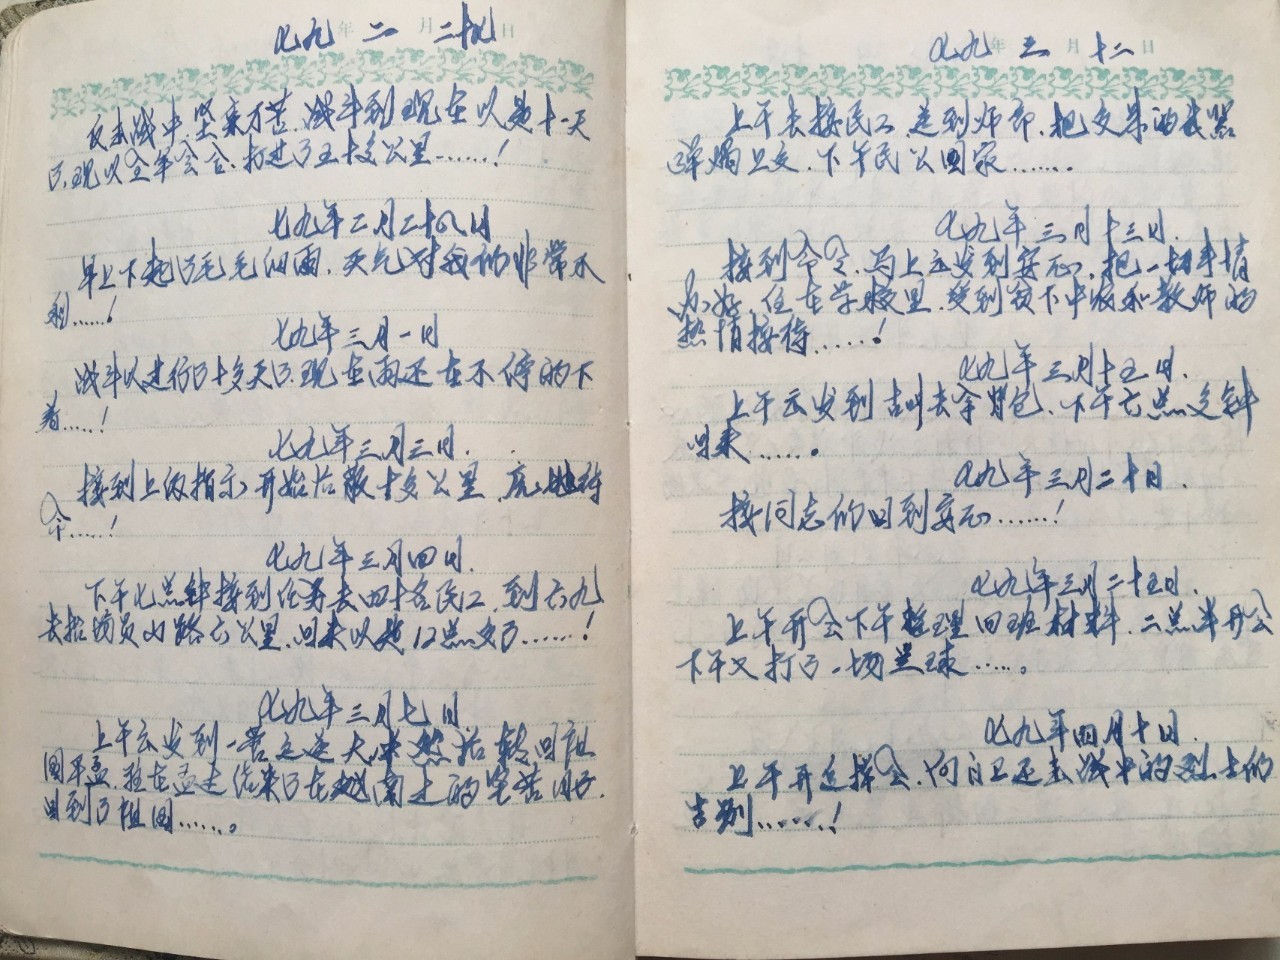 七九年二月二十七日
反击战中,坚亲不苦,战斗到现在以是十一天
了,现以全军会合,打进了五十多公里……!
七九年二月二十八日
早上下起了毛毛细雨,天气对我们非常不
利……!
七九年三月一日
战斗以进行了十多天了,现在雨还在不停的下
着……!
七九年三月三日.
接到上级指示,开始后撤十多公里,原地待
令……!
七九年三月四日.
下午七点钟接到任务去四十名民工,到六九
去抬伤员山路六公里,回来以是12点文了……!
七九年三月七日.
上午出发到一营之连大然后转回祖
国平孟,驻在孟士结束了在越南土的坚苦日子.
回到了祖国……。
七九年三月十二日
上午去接民工走到师部,把文件的武器
弹媰上交.下午民公回家……。
七九年三月十三日.
接到命令,马上出发到安心,把一切事情
办好,住在学校里,受到贫下中农和教师的
热情接待……!
七九年三月十五日.
上午出发到古叫去拿背包,下午六点多钟
回来……。
七九年三月二十日.
接同志们回到安心……!
七九年三月二十五日.
上午开会下午整理四班材料,二点半开会
下午又打了一场兰球……。
七九年四月十日.
上午开追掉会,向自卫还击战中的烈士们
告别……!